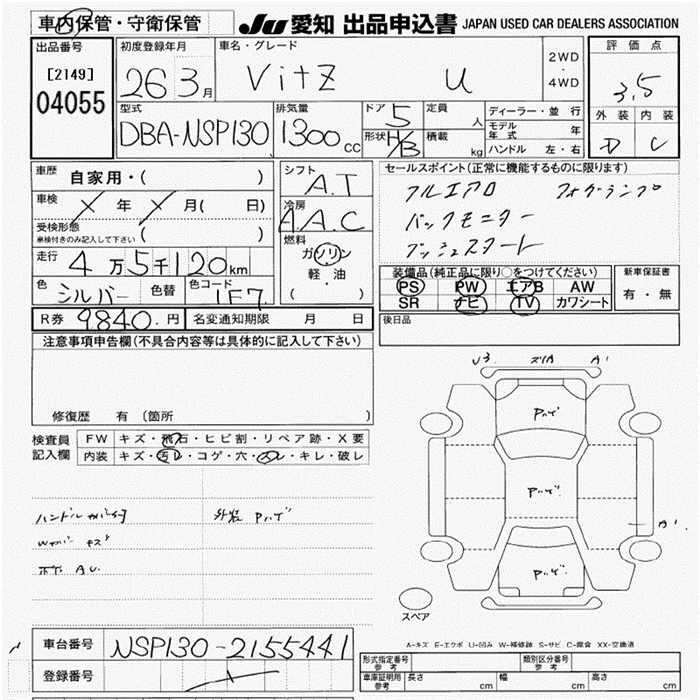 車内保管・守衛保管
JU 愛知 出品申込書 JAPAN USED CAR DEALERS ASSOCIATION
出品番号
[2149]
04055
初度登録年月
26 3月
車名・グレード
Vitz U
2WD
・
4WD
評価点
3.5
外装 内装
D C
型式
DBA-NSP130
排気量
1300cc
ドア 5
形状 H/B
定員 人
積載 kg
ディーラー・並行
モデル年式 年
ハンドル 左・右
車歴 自家用・( )
車検 X 年 X 月( 日)
受検形態
車検付きのみ記入して下さい ( )
走行 4万5千120km
色 シルバー 色替 色コード 1F7
シフト A.T
冷房 A.A.C
燃料
ガソリン
軽・油
( ・ )
セールスポイント(正常に機能するものに限ります)
フルエアロ フォグランプ
バックモニター
プッシュスタート
装備品(純正品に限り○をつけてください)
PS PW エアB AW
SR ナビ TV カワシート
新車保証書
有・無
R券 9840円 名変通知期限 月 日
後日品
注意事項申告欄(不具合内容等は具体的に記入して下さい)
修復歴 有(箇所 )
検査員
記入欄
FW キズ・飛石・ヒビ割・リペア跡・X要
内装 キズ・汚レ・コゲ・穴・スレ・キレ・破レ
ハンドル
外装 Pハゲ
キズ
U3 A1
Pハゲ
Pハゲ
Pハゲ
A1
スペア
A-キズ E-エクボ U-凹み W-補修跡 S-サビ C-腐食 XX-交換済
車台番号 NSP130-2155441
登録番号
形式指定番号
参考
類別区分番号
参考
車庫証明用
参考
長さ cm 幅 cm 高さ cm